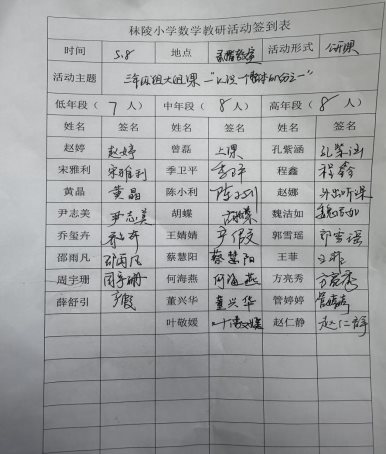 秣陵小学数学教研活动签到表
时间 5.8 地点 录播教室 活动形式 公开课
活动主题 三年级组大组课—"认识一个整体的几分之一"
低年段（7人） 中年段（8人） 高年段（8人）
姓名 签名 姓名 签名 姓名 签名
赵婷 赵婷 曾磊 上课 孔紫涵 孔紫涵
宋雅利 宋雅利 季卫平 季卫平 程鑫 程鑫
黄晶 黄晶 陈小利 陈小利 赵娜 外出听课
尹志美 尹志美 胡蝶 胡蝶 魏洁如 魏洁如
乔玺卉 乔玺卉 王婧婧 产假 郭雪瑶 郭雪瑶
邵雨凡 邵雨凡 蔡慧阳 蔡慧阳 王菲 王菲
周宇珊 周宇珊 何海燕 何海燕 方亮秀 方亮秀
薛舒引 产假 董兴华 董兴华 管婷婷 管婷婷
叶敬媛 叶敬媛 赵仁静 赵仁静